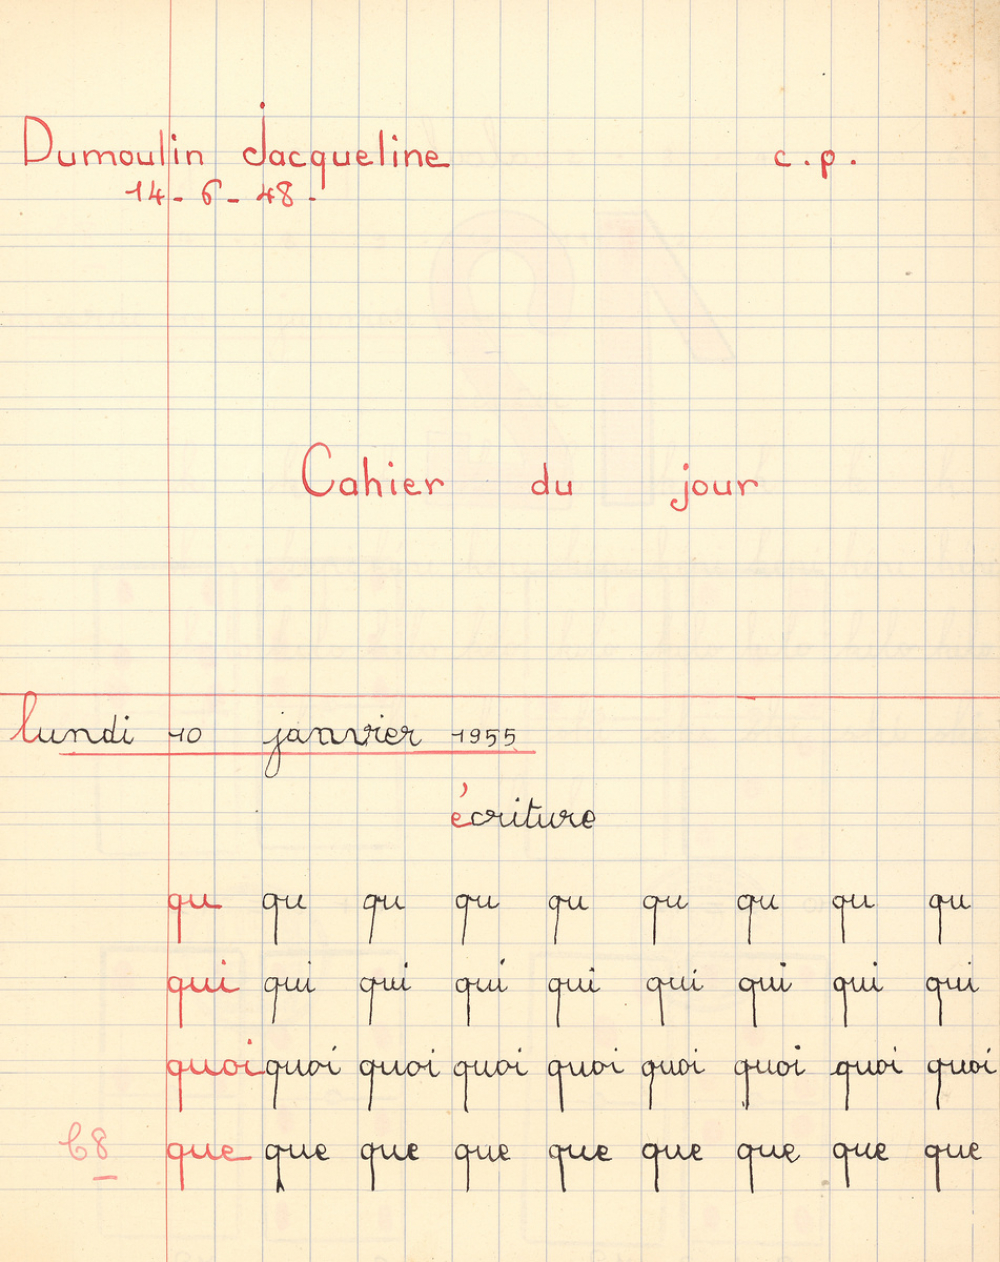 Dumoulin Jacqueline c.p.
14-6-48-
Cahier du jour
lundi 10 janvier 1955
écriture
qu qu qu qu qu qu qu qu qu
qui qui qui qui qui qui qui qui qui
quoi quoi quoi quoi quoi quoi quoi quoi quoi
que que que que que que que que que